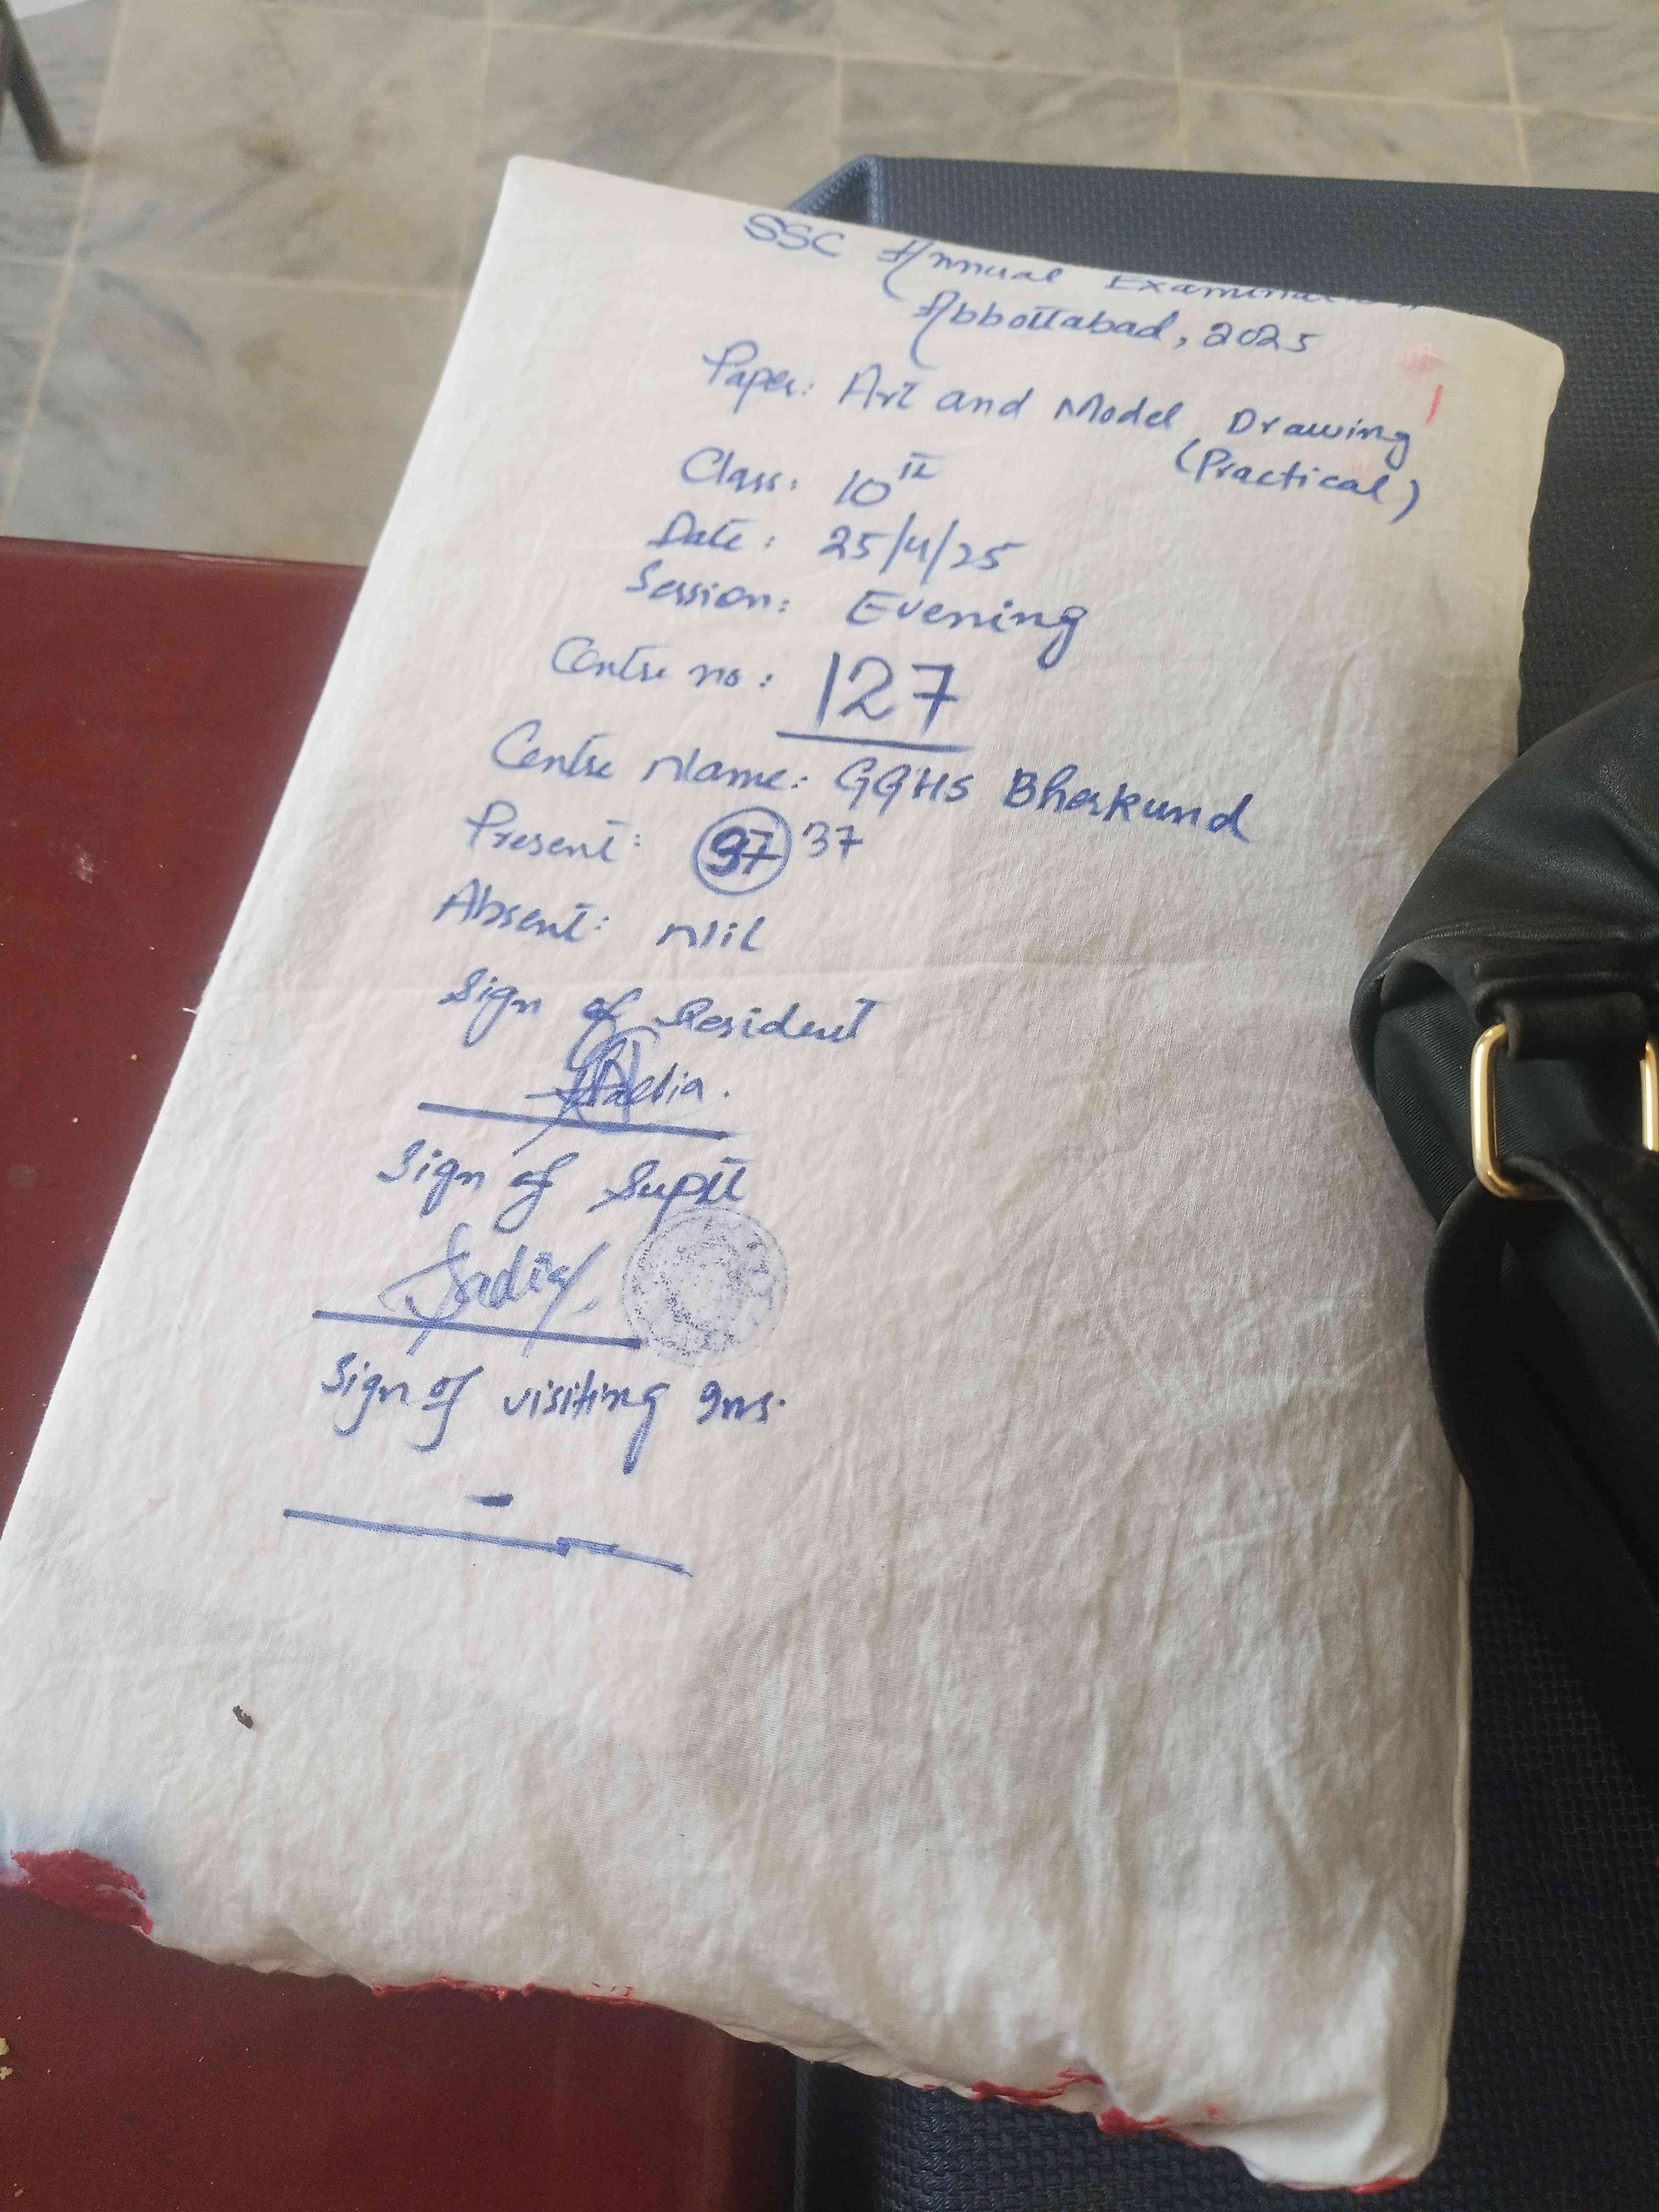 SSC Annual Examination
Abbottabad, 2025
Paper: Art and Model Drawing
(Practical)
Class: 10th
Date: 25/4/25
Session: Evening
Centre no: 127
Centre Name: GGHS Bherkund
Present: 37 37
Absent: Nil
Sign of Resident
Sign of Supdt
Sadia
Sign of visiting Ins.
-